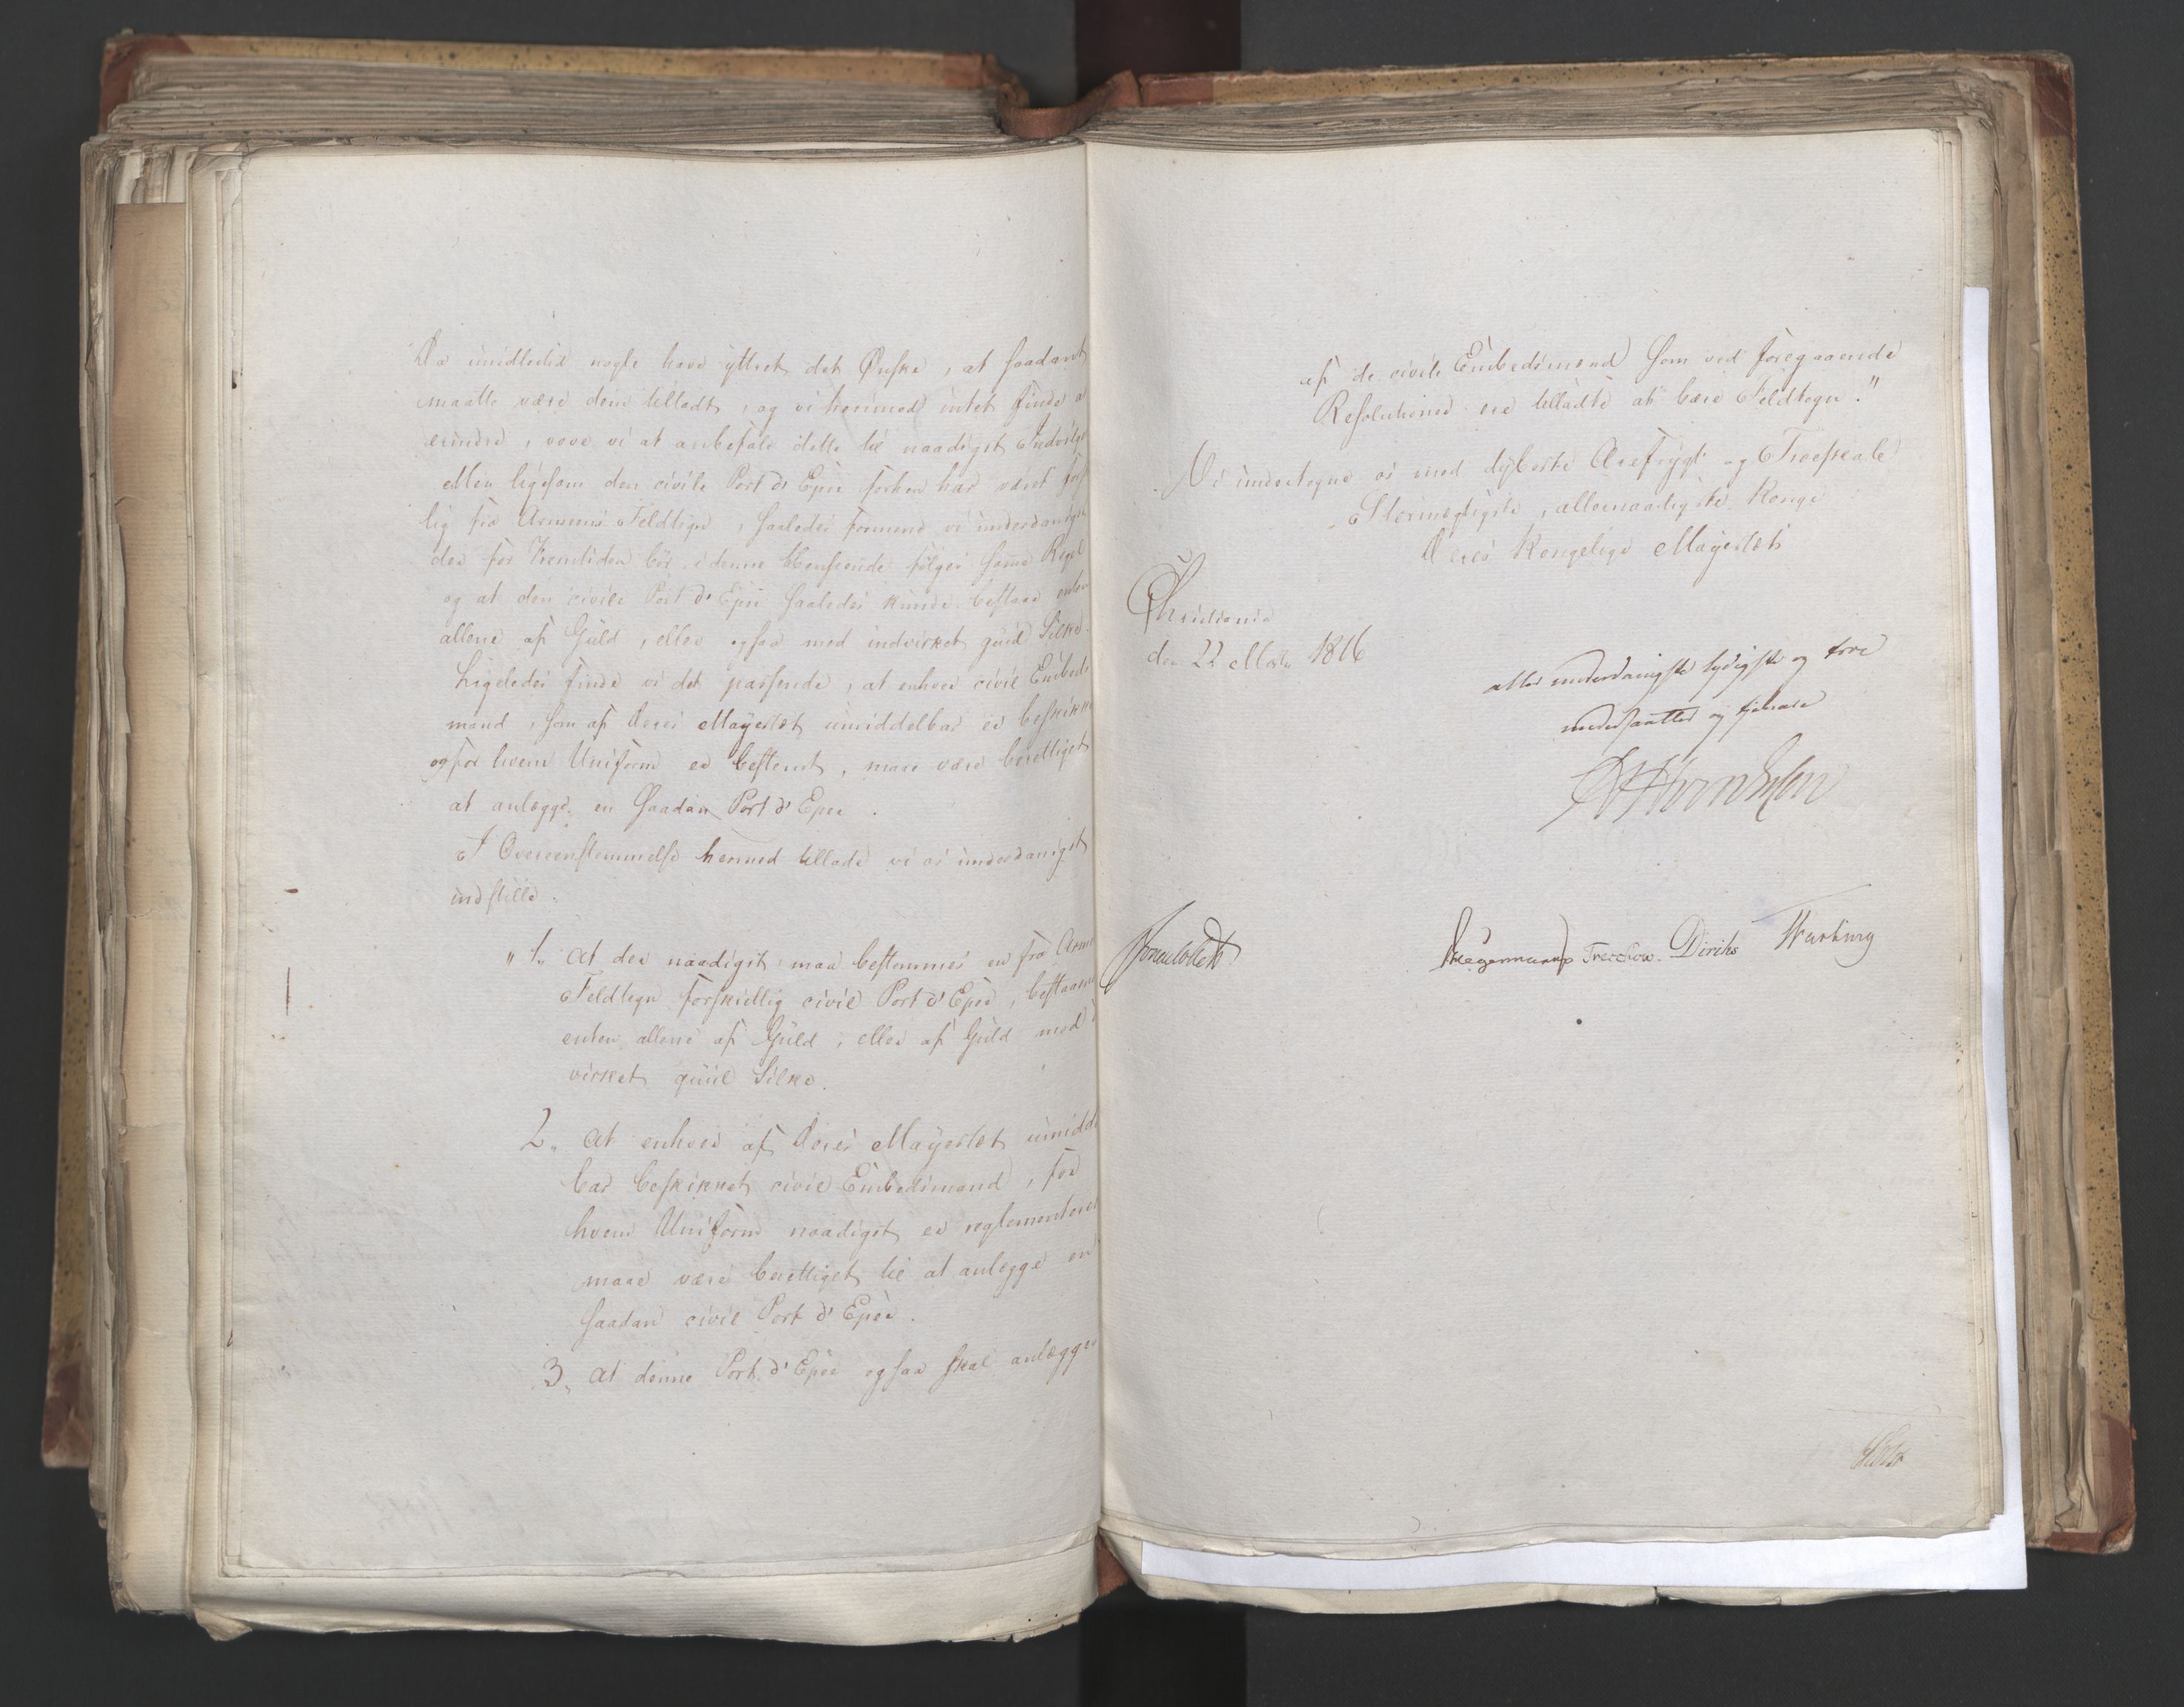 Da imidlertid nogle have yttret det Ønske, at saadant
maatte være dem tilladt, og vi herimod intet finde a
erindre, vove vi at anbefale dette til naadigst Indvilge
Men ligesom den civile Port d'Epee forhen har været forskj
lig fra Armeens Feldtegn, saaledes formene vi underdanigst
der for Fremtiden bør i denne Henseende følges samme Regel
og at den civile Port d'Epee saaledes kunde bestaae enten
allene af Guld, eller ogsaa med indvirket guul Silke.
Ligeledes finde vi det passende, at enhver civil Embeds
mand, som af Deres Mayestæt umiddelbar er beskikke
og for hvem Uniform er bestemt, maae være berettiget
at anlægge en saadan Port d'Epee.
I Overeensstemmelse hermed tillade vi os underdanigst
indstille.
"1, at der naadigst maa bestemmes en fra Arme
Feldtegn forskiellig civil Port d'Epee, bestaaen
enten allene af Guld, eller af Guld med i
virket guul Silke.
2, at enhver af Deres Mayestæt umidde
bar beskikket civil Embedsmand, for
hvem Uniform naadigst er reglementeret
maae være berettiget til at anlægge en
saadan civil Port d'Epee.
3, at denne Port d'Epee ogsaa skal anlægges
af de civile Embedsmænd som ved foregaaende
Resolutioner ere tilladte at bære Feldtegn."
Vi undertegne os med dybeste Ærefrygt og Troeskab
Stormægtigste, allernaadigste Konge
Deres Kongelige Mayestæts
Christiania
den 22 Marts 1816
aller underdanigste lydigste og troe
undersaatter og tjenere
Sommerhielm
Hegermann Treschow. Diriks
Holst